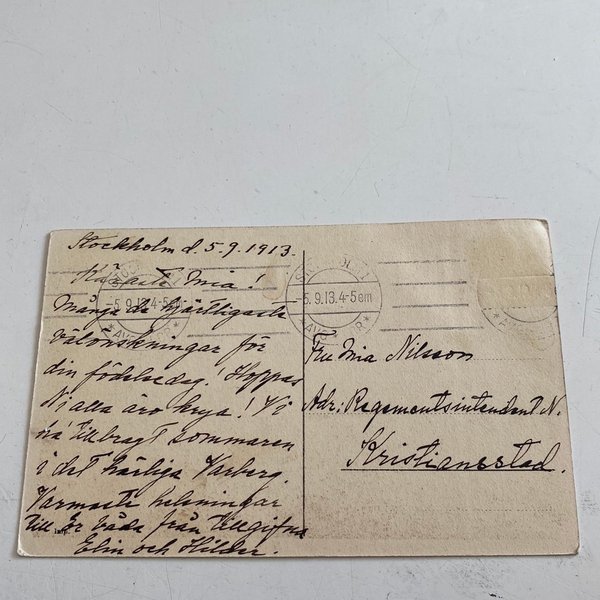 Stockholm d. 5.9.1913.
Käraste Mia!
Många de hjärtligaste
välönskningar för
din födelsedag! Hoppas
Ni alla äro krya! Vi
ha tillbragt sommaren
i det härliga Varberg.
Varmaste helsningar
till Er båda från tillgifna
Elin och Hilder.
-5.9.13.4-5
* AVG
STOCKHOLM 1
-5.9.13.4-5 em
* AVG
Fru Mia Nilsson
Adr: Regementsintendent N.
Kristiansstad.